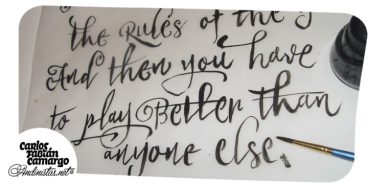 the Rules of the g
And then you have
to play Better than
anyone else.
Carlos
Fabian
Camargo
Andinistas.net